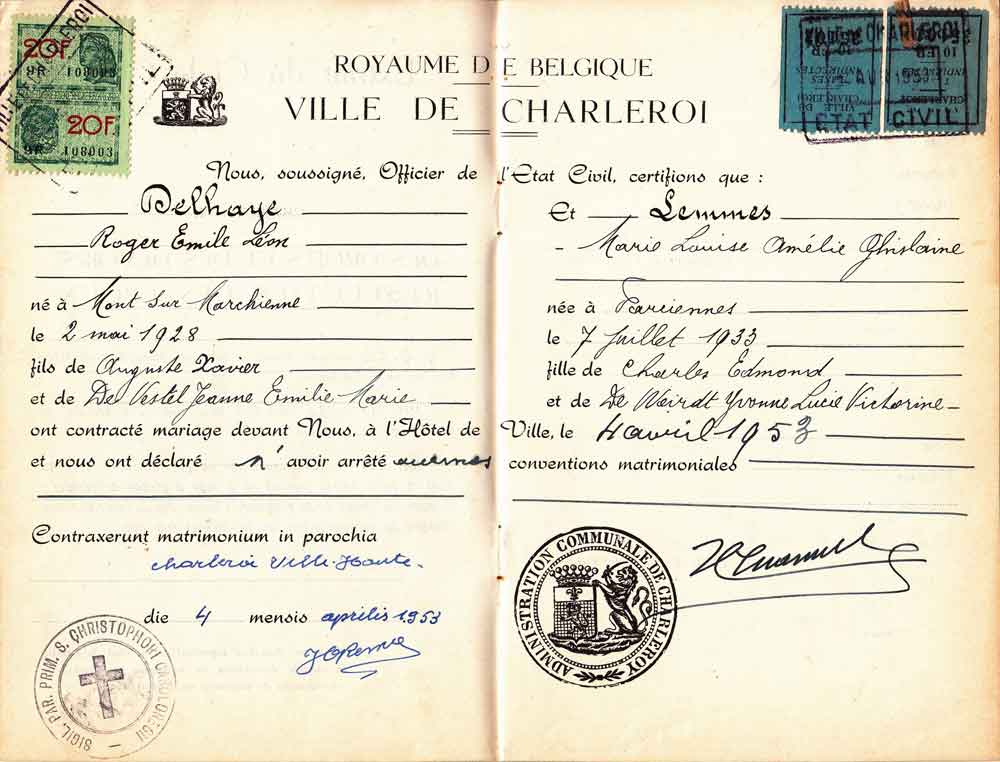 20F
9R 108003
20F
9R 108003
VILLE DE CHARLEROI
ETAT CIVIL
TAXES INDIRECTES
VILLE DE CHARLEROI
10 FR
ROYAUME DE BELGIQUE
VILLE DE CHARLEROI
Nous, soussigné, Officier de l'Etat Civil, certifions que :
Delhaye
Roger Emile Léon
né à Mont sur Marchienne
le 2 mai 1928
fils de Auguste Xavier
et de De Vestel Jeanne Emilie Marie
Et Lemmes
Marie Louise Amélie Ghislaine
née à Farciennes
le 7 Juillet 1933
fille de Charles Edmond
et de De Weirdt Yvonne Lucie Victorine
ont contracté mariage devant Nous, à l'Hôtel de Ville, le 4 avril 1953
et nous ont déclaré n'avoir arrêté aucunes conventions matrimoniales
Contraxerunt matrimonium in parochia
Charleroi Ville-Haute.
die 4 mensis aprilis 1953
SIGIL. PAR. PRIM. S. CHRISTOPHORI
ADMINISTRATION COMMUNALE DE CHARLEROY